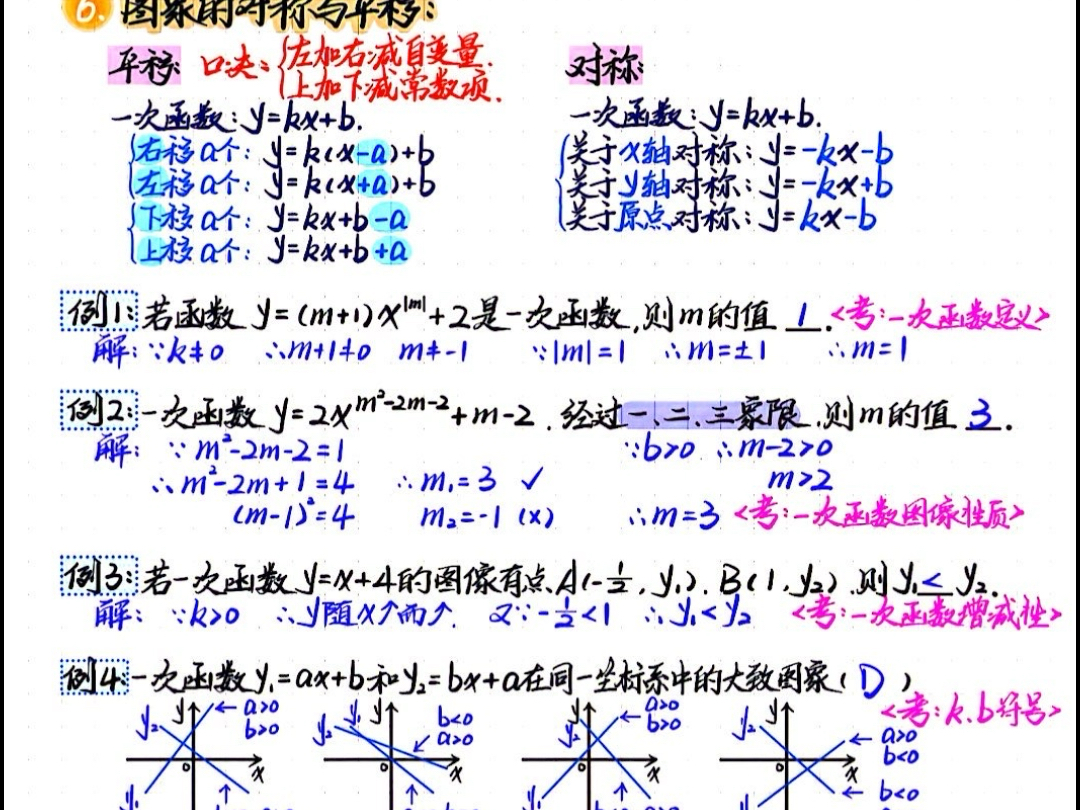 6. 图象的对称与平移:
平移: 口决: 左加右减自变量.
上加下减常数项.
一次函数: y=kx+b.
右移a个: y=k(x-a)+b
左移a个: y=k(x+a)+b
下移a个: y=kx+b-a
上移a个: y=kx+b+a
对称:
一次函数: y=kx+b.
关于x轴对称: y=-kx-b
关于y轴对称: y=-kx+b
关于原点对称: y=kx-b
例1: 若函数 y=(m+1)x^|m|+2是一次函数,则m的值 1 . <考:一次函数定义>
解: ∵k≠0 ∴m+1≠0 m≠-1 ∵|m|=1 ∴m=±1 ∴m=1
例2: 一次函数 y=2x^m²-2m-2+m-2. 经过一、二、三象限,则m的值 3 .
解: ∵m²-2m-2=1 ∵b>0 ∴m-2>0
∴m²-2m+1=4 ∴m₁=3 ✓ m>2
(m-1)²=4 m₂=-1 (x) ∴m=3 <考:一次函数图像性质>
例3: 若一次函数 y=x+4的图像有点A(-1/2, y₁). B(1, y₂).则y₁ < y₂.
解: ∵k>0 ∴y随x↑而↑. 又∵-1/2<1 ∴y₁<y₂ <考:一次函数增减性>
例4: 一次函数y₁=ax+b和y₂=bx+a在同一坐标系中的大致图象( D )
<考: k.b符号>
y₂ y ← a>0
b>0
0 x
y₁ ↑
y₂ y₁ y b<0
a>0
0 x
↑
y y₂ ← a>0
b>0
0 x
y₁ ↑
y₂ y ← a>0
b<0
0 x
y₁ ← b<0